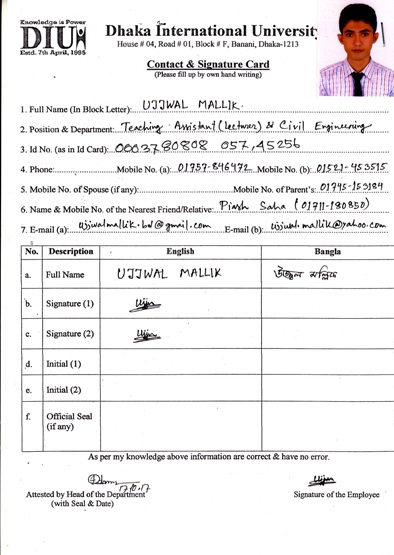 Knowledge is Power
DIU
Estd. 7th April, 1995
Dhaka International University
House # 04, Road # 01, Block # F, Banani, Dhaka-1213
Contact & Signature Card
(Please fill up by own hand writing)
1. Full Name (In Block Letter): UJJWAL MALLIK.
2. Position & Department: Teaching Assistant (Lecturer) & Civil Engineering
3. Id No. (as in Id Card): 0003780808 057,45256
4. Phone: Mobile No. (a) 01757-846472 Mobile No. (b): 01521-453515
5. Mobile No. of Spouse (if any): Mobile No. of Parent's: 01745-153184
6. Name & Mobile No. of the Nearest Friend/Relative: Piash Saha (01711-190850)
7. E-mail (a): ujjwalmallik.bd@gmail.com E-mail (b): ujjwal.mallik@yahoo.com
No. Description English Bangla
a. Full Name UJJWAL MALLIK উজ্জ্বল মল্লিক
b. Signature (1) Ujjw
c. Signature (2) Ujjw
d. Initial (1)
e. Initial (2)
f. Official Seal
(if any)
As per my knowledge above information are correct & have no error.
17.10.17
Attested by Head of the Department Signature of the Employee
(with Seal & Date)